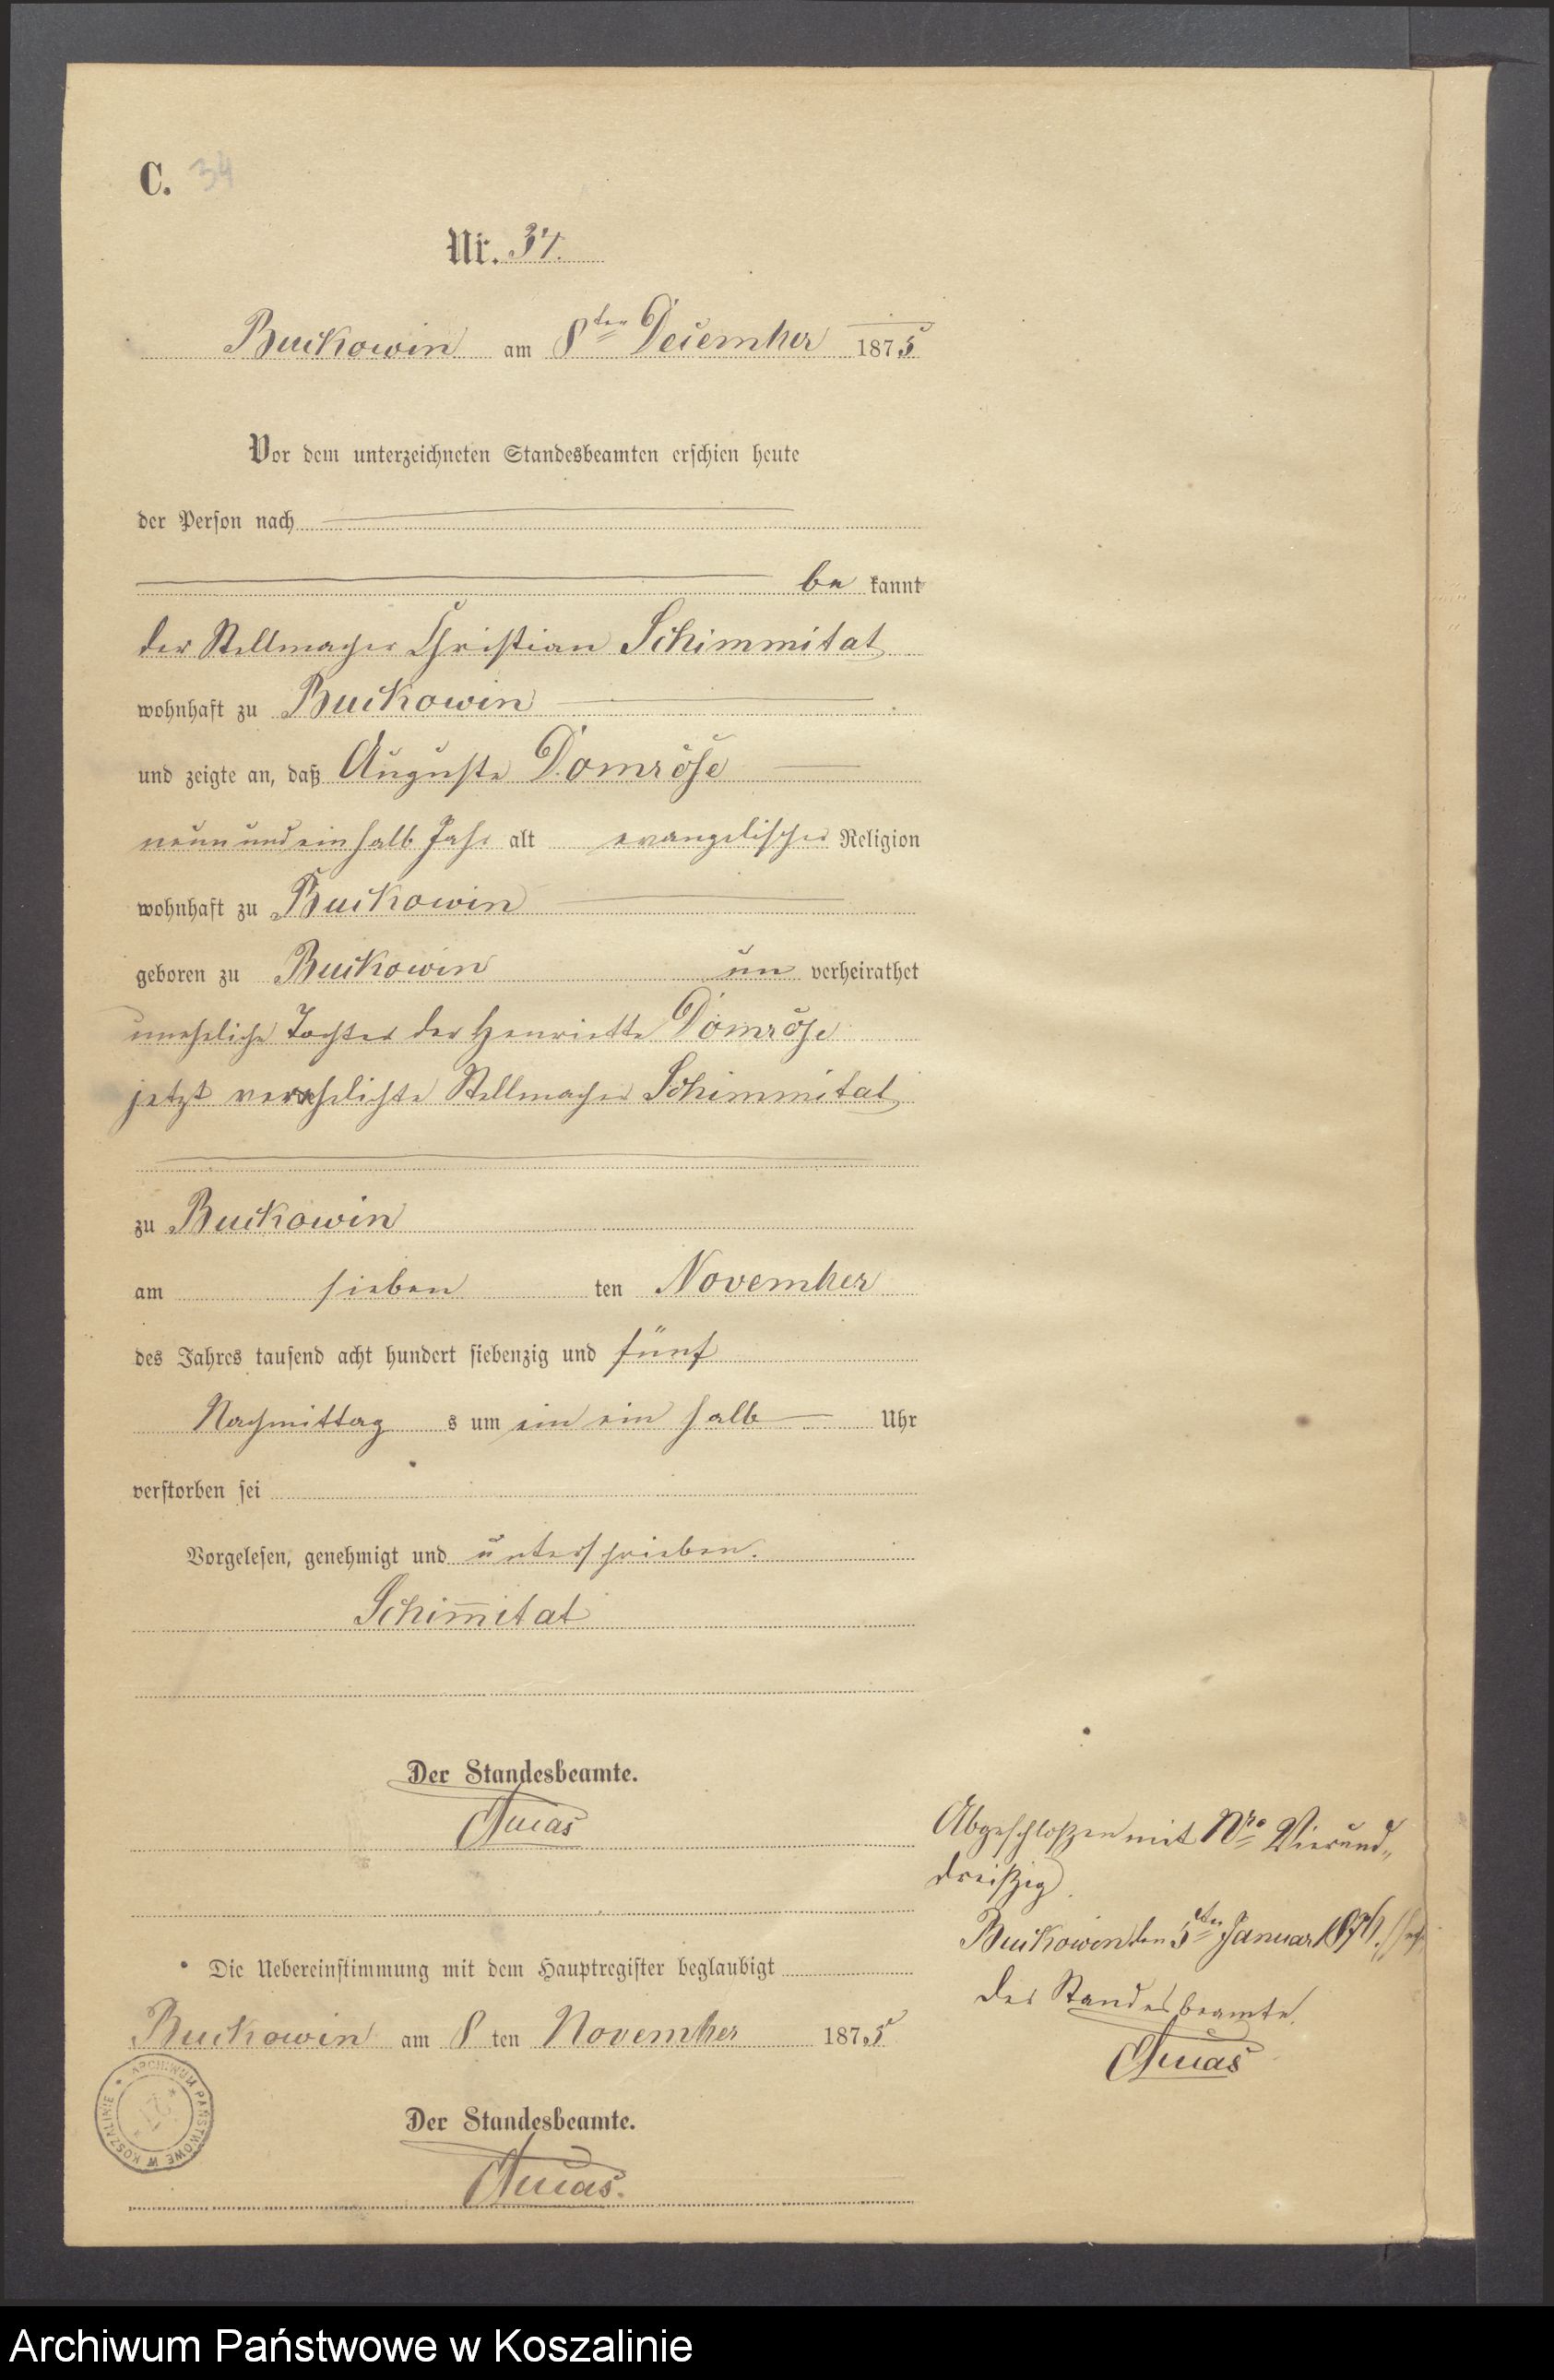 C. 34
Nr. 34.
Buckowin am 8ten December 1875
Vor dem unterzeichneten Standesbeamten erschien heute
der Person nach
be kannt
der Stellmacher Christian Schimmitat
wohnhaft zu Buckowin
und zeigte an, daß Auguste Domröse
neun und ein halb Jahr alt evangelischer Religion
wohnhaft zu Buckowin
geboren zu Buckowin un verheirathet
uneheliche Tochter der Henriette Domröse
jetzt verehelichte Stellmacher Schimmitat
zu Buckowin
am sieben ten November
des Jahres tausend acht hundert siebenzig und fünf
Nachmittag s um ein ein halb Uhr
verstorben sei
Vorgelesen, genehmigt und unterschrieben.
Schim̅itat
Der Standesbeamte.
Die Uebereinstimmung mit dem Hauptregister beglaubigt
Buckowin am 8 ten November 1875
Der Standesbeamte.
Abgeschloßen mit Nro Vierund„
dreißzig
Buckowin den 5ten Januar
Der Standesbeamte.
ARCHIWUM PAŃSTWOWE W KOSZALINIE
Archiwum Państwowe w Koszalinie